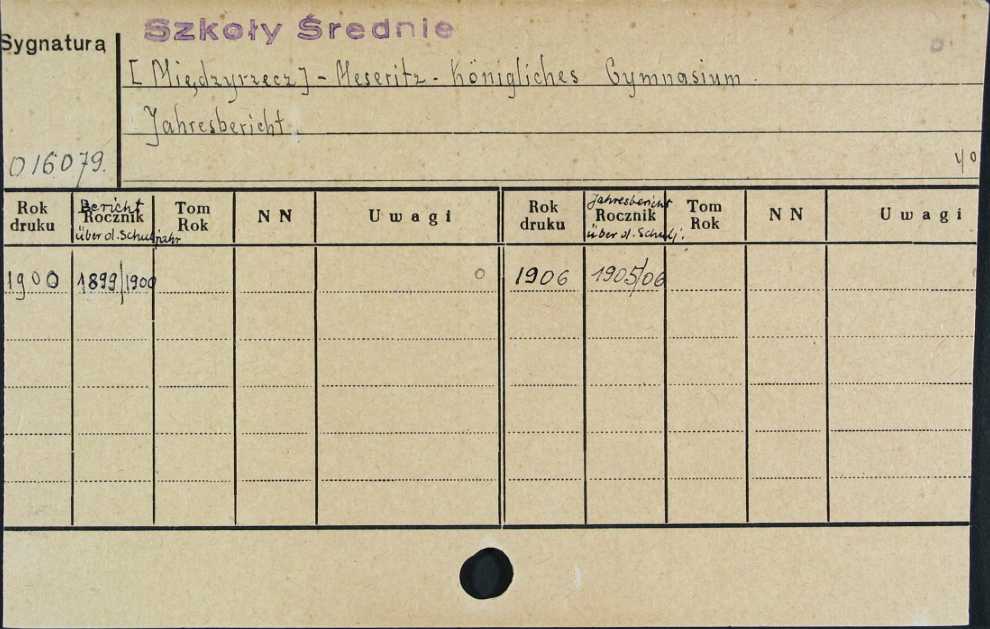 Szkoły Średnie
Sygnatura
[Międzyrzecz] - Meseritz - Königliches Gymnasium.
Jahresbericht.
016079.
40
Rok druku Bericht Rocznik über d. Schuljahr Tom Rok NN Uwagi Rok druku Jahresbericht Rocznik über d. Schulj. Tom Rok NN Uwagi
1900 1899/1900 1906 1905/06